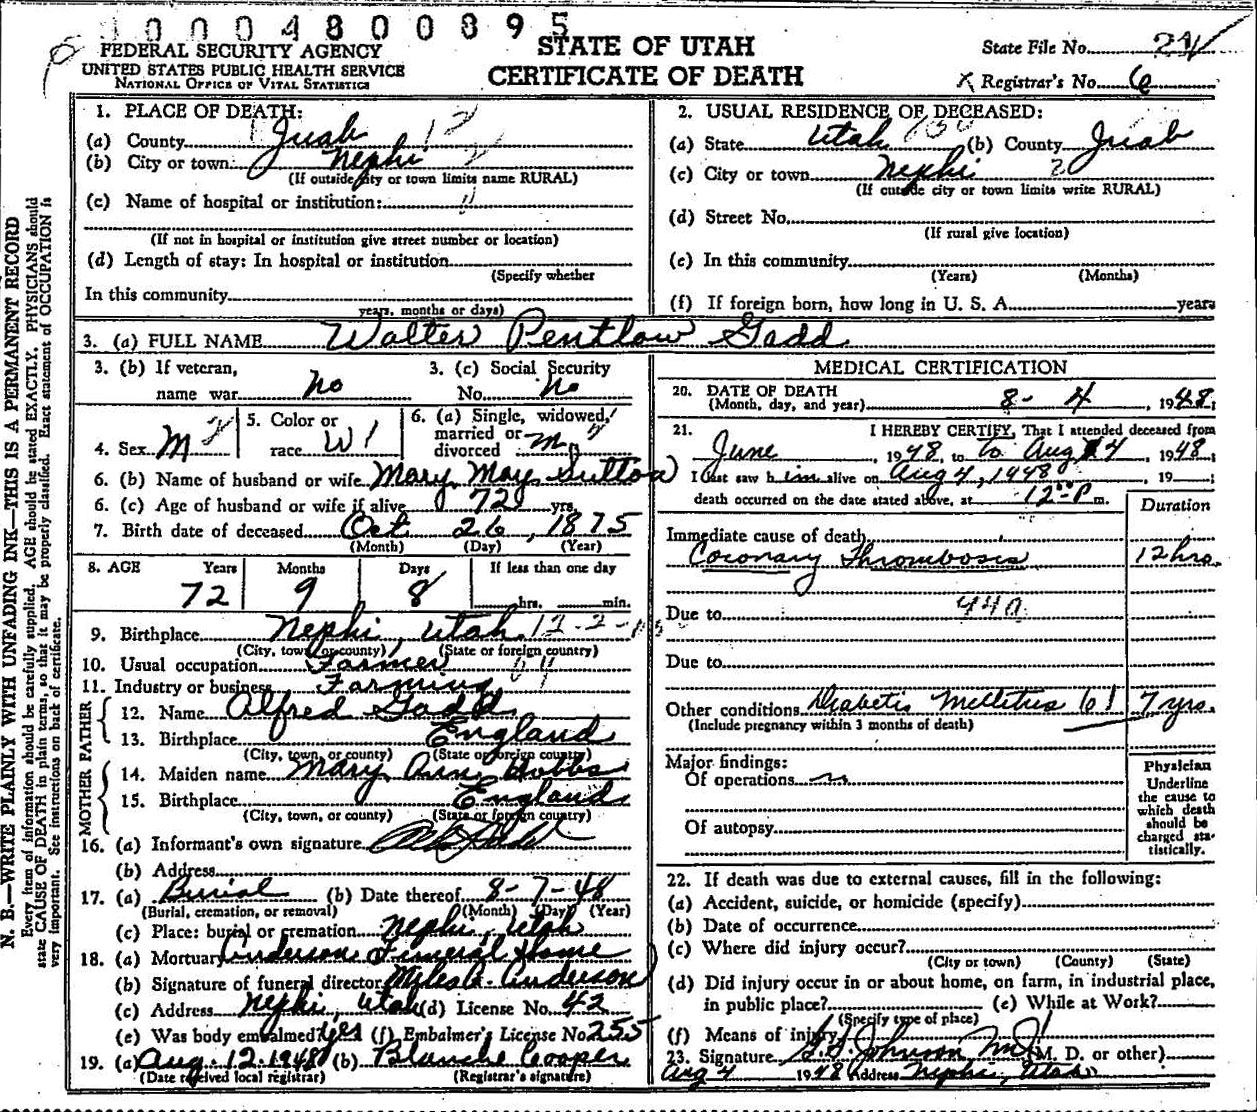 0004800895
FEDERAL SECURITY AGENCY
UNITED STATES PUBLIC HEALTH SERVICE
NATIONAL OFFICE OF VITAL STATISTICS
STATE OF UTAH
CERTIFICATE OF DEATH
State File No.
Registrar's No. 6
N. B.—WRITE PLAINLY WITH UNFADING INK—THIS IS A PERMANENT RECORD
Every item of information should be carefully supplied. AGE should be stated EXACTLY. PHYSICIANS should
state CAUSE OF DEATH in plain terms, so that it may be properly classified. Exact statement of OCCUPATION is
very important. See instructions on back of certificate.
1. PLACE OF DEATH:
(a) County Juab
(b) City or town Nephi
(If outside city or town limits name RURAL)
(c) Name of hospital or institution:
(If not in hospital or institution give street number or location)
(d) Length of stay: In hospital or institution
(Specify whether
In this community
years, months or days)
2. USUAL RESIDENCE OF DECEASED:
(a) State Utah (b) County Juab
(c) City or town Nephi
(If outside city or town limits write RURAL)
(d) Street No.
(If rural give location)
(e) In this community
(Years) (Months)
(f) If foreign born, how long in U. S. A. years
3. (a) FULL NAME Walter Pentlow Gadd
3. (b) If veteran, name war no
3. (c) Social Security No. no
4. Sex M
5. Color or race W
6. (a) Single, widowed, married or divorced m
6. (b) Name of husband or wife Mary May Sutton
6. (c) Age of husband or wife if alive 72 yrs.
7. Birth date of deceased Oct 26, 1875
(Month) (Day) (Year)
8. AGE Years Months Days If less than one day
72 9 8 hrs. min.
9. Birthplace Nephi, Utah
(City, town or county) (State or foreign country)
10. Usual occupation Farmer
11. Industry or business Farming
FATHER
12. Name Alfred Gadd
13. Birthplace England
(City, town, or county) (State or foreign country)
MOTHER
14. Maiden name Mary Ann Hobbs
15. Birthplace England
(City, town, or county) (State or foreign country)
16. (a) Informant's own signature
(b) Address
17. (a) Burial (b) Date thereof 8-7-48
(Burial, cremation, or removal) (Month) (Day) (Year)
(c) Place: burial or cremation Nephi, Utah
18. (a) Mortuary Anderson Funeral Home
(b) Signature of funeral director Miles Anderson
(c) Address Nephi, Utah (d) License No. 42
(e) Was body embalmed? Yes (f) Embalmer's License No. 255
19. (a) Aug. 12. 1948 (b) Blanche Cooper
(Date received local registrar) (Registrar's signature)
MEDICAL CERTIFICATION
20. DATE OF DEATH
(Month, day, and year) 8- 4, 1948;
21. I HEREBY CERTIFY, That I attended deceased from
June, 1948, to to Aug 4 1948;
I last saw him alive on Aug 4, 1948, 19 ;
death occurred on the date stated above, at 12 P m.
Duration
Immediate cause of death
Coronary Thrombosis 12 hrs.
Due to
Due to
Other conditions Diabetis Mellitus 61 7 yrs.
(Include pregnancy within 3 months of death)
Major findings:
Of operations
Of autopsy
Physician
Underline
the cause to
which death
should be
charged sta-
tistically.
22. If death was due to external causes, fill in the following:
(a) Accident, suicide, or homicide (specify)
(b) Date of occurrence
(c) Where did injury occur?
(City or town) (County) (State)
(d) Did injury occur in or about home, on farm, in industrial place,
in public place? (e) While at Work?
(Specify type of place)
(f) Means of injury
23. Signature Johnson M.D. (M. D. or other)
Aug 4 1948 Address Nephi, Utah